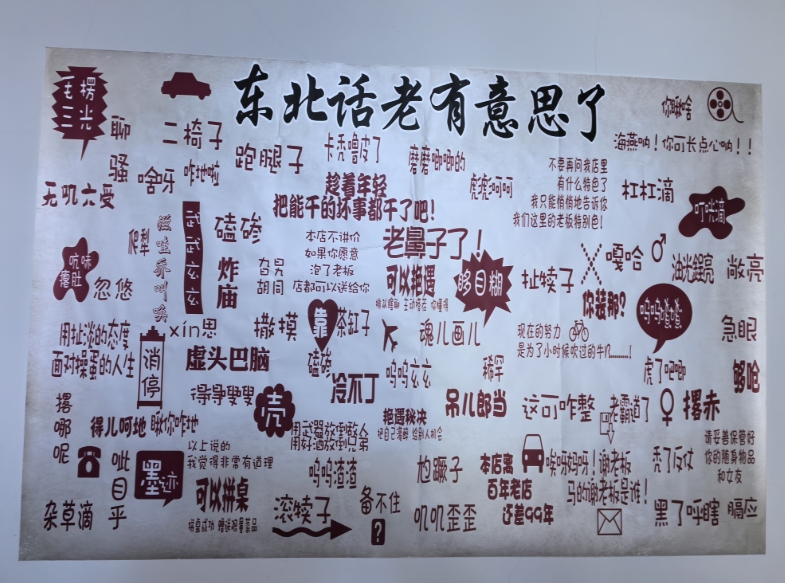 东北话老有意思了
毛楞
三光
聊
骚
二椅子
跑腿子
卡秃噜皮了
磨磨唧唧的
你瞅啥
海燕呐！你可长点心呐！！
无叽六受
啥呀
咋地啦
趁着年轻
把能干的坏事都干了吧！
虎虎呵呵
不要再问我店里
有什么特色了
我只能悄悄地告诉你
我们这里的老板特别色！
杠杠滴
叮咣滴
爬犁
滋哇乔叫唤
武武玄玄
磕碜
本店不讲价
如果你愿意
泡了老板
店都可以送给你
老鼻子了！
可以艳遇
哆目糊
扯犊子
嘎哈
敞亮
忽悠
炸庙
旮旯
胡同
你装那？
呜呜喳喳
用扯淡的态度
面对操蛋的人生
xin思
消停
撒摸
靠
茶缸子
魂儿画儿
现在的努力
是为了小时候吹过的牛几
急眼
虚头巴脑
磕碜
呜呜玄玄
稀罕
虎了唧唧
够呛
得得嗖嗖
壳
冷不丁
艳遇秘诀
把自己灌醉 给别人机会
吊儿郎当
这可咋整
老霸道了
撂赤
撂哪呢
得儿呵地
瞅你咋地
用武器放倒敌人
用好酒放倒兄弟
呲目乎
墨迹
以上说的
我觉得非常有道理
呜呜渣渣
尥蹶子
本店离
百年老店
还差99年
唉妈妈呀！谢老板
马的谢老板是谁！
秃了反仗
请妥善保管好
你的随身物品
和女友
可以拼桌
杂草滴
滚犊子
备不住
?
叽叽歪歪
黑了呼瞎
膈应